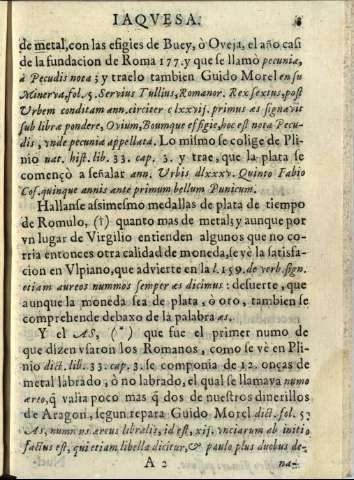 IAQVESA.
de metal, con las efigies de Buey, ò Oveja, el año casi
de la fundacion de Roma 177. y que se llamò pecunia,
à Pecudis nota; y traelo tambien Guido Morel en su
Minerva, fol. 5. Servius Tullius, Romanor. Rex sextus, post
Vrbem conditam ann. circiter clxxvij. primus æs signavit
sub libræ pondere, Ovium, Boumque effigie, hoc est nota Pecu-
dis, vnde pecunia appellata. Lo mismo se colige de Pli-
nio nat. hist. lib. 33. cap. 3. y trae, que la plata se
començo a señalar ann. Vrbis dlxxxv. Quinto Fabio
Cos. quinque annis ante primum bellum Punicum.
Hallanse assimesmo medallas de plata de tiempo
de Romulo, (†) quanto mas de metal; y aunque por
vn lugar de Virgilio entienden algunos que no co-
rria entonces otra calidad de moneda, se vè la satisfa-
cion en Vlpiano, que advierte en la l. 159. de verb. sign.
etiam aureos nummos semper æs dicimus: desuerte, que
aunque la moneda sea de plata, ò oro, tambien se
comprehende debaxo de la palabra æs.
Y el AS, (*) que fue el primer numo de
que dizen vsaron los Romanos, como se vè en Pli-
nio dict. lib. 33. cap. 3. se componia de 12. onças de
metal labrado, ò no labrado, el qual se llamava numo
æreo, q̃ valia poco mas q̃ dos de nuestros dinerillos
de Aragon, segun repara Guido Morel dict. fol. 5.
As, nummus æreus libralis, id est, xij. vnciarum ab initio
factus est, qui etiam libella dicitur, & paulo plus duobus de-
A 2 na-